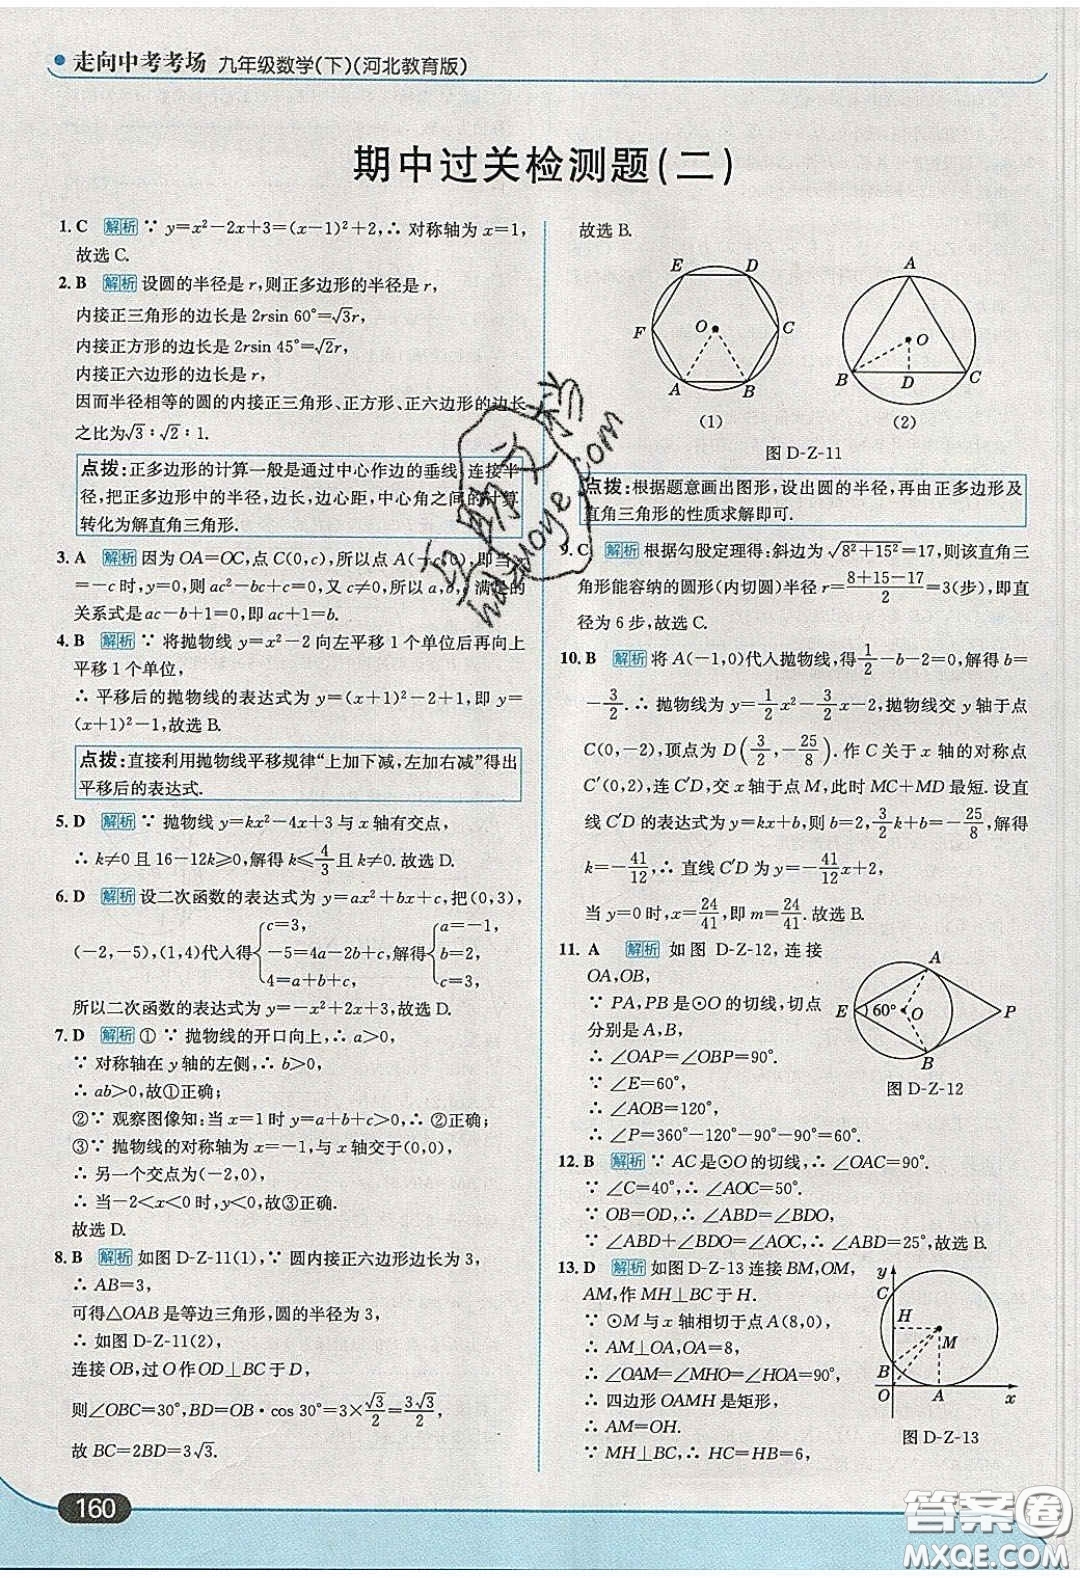 走向中考考场 九年级数学(下)(河北教育版)
期中过关检测题(二)
1. C 解析 ∵ y=x²-2x+3=(x-1)²+2,∴ 对称轴为 x=1,
故选 C.
2. B 解析 设圆的半径是 r,则正多边形的半径是 r,
内接正三角形的边长是 2rsin 60°=√3r,
内接正方形的边长是 2rsin 45°=√2r,
内接正六边形的边长是 r,
因而半径相等的圆的内接正三角形、正方形、正六边形的边长
之比为√3∶√2∶1.
点拨:正多边形的计算一般是通过中心作边的垂线,连接半
径,把正多边形中的半径,边长,边心距,中心角之间的计算
转化为解直角三角形.
3. A 解析 因为 OA=OC,点 C(0,c),所以点 A(-c,0),即当 x
=-c 时,y=0,则 ac²-bc+c=0,又 c≠0,所以 a,b,c 满足的
关系式是 ac-b+1=0,即 ac+1=b.
4. B 解析 ∵ 将抛物线 y=x²-2 向左平移 1 个单位后再向上
平移 1 个单位,
∴ 平移后的抛物线的表达式为 y=(x+1)²-2+1,即 y=
(x+1)²-1,故选 B.
点拨:直接利用抛物线平移规律“上加下减,左加右减”得出
平移后的表达式.
5. D 解析 ∵ 抛物线 y=kx²-4x+3 与 x 轴有交点,
∴ k≠0 且 16-12k≥0,解得 k≤4/3 且 k≠0.故选 D.
6. D 解析 设二次函数的表达式为 y=ax²+bx+c,把(0,3),
(-2,-5),(1,4)代入得{c=3, -5=4a-2b+c, 4=a+b+c,解得{a=-1, b=2, c=3,
所以二次函数的表达式为 y=-x²+2x+3,故选 D.
7. D 解析 ① ∵ 抛物线的开口向上,∴ a>0,
∵ 对称轴在 y 轴的左侧,∴ b>0,
∴ ab>0,故①正确;
②∵ 观察图像知:当 x=1 时 y=a+b+c>0,∴ ②正确;
③∵ 抛物线的对称轴为 x=-1,与 x 轴交于(0,0),
∴ 另一个交点为(-2,0),
∴ 当-2<x<0 时,y<0,故③正确;
故选 D.
8. B 解析 如图 D-Z-11(1),∵ 圆内接正六边形边长为 3,
∴ AB=3,
可得△OAB 是等边三角形,圆的半径为 3,
∴ 如图 D-Z-11(2),
连接 OB,过 O 作 OD⊥BC 于 D,
则∠OBC=30°,BD=OB·cos 30°=3×√3/2=3√3/2,
故 BC=2BD=3√3.
160
故选 B.
E D F O C A B
(1)
A O B D C
(2)
图 D-Z-11
点拨:根据题意画出图形,设出圆的半径,再由正多边形及
直角三角形的性质求解即可.
9. C 解析 根据勾股定理得:斜边为√(8²+15²)=17,则该直角三
角形能容纳的圆形(内切圆)半径 r=(8+15-17)/2=3(步),即直
径为 6 步,故选 C.
10. B 解析 将 A(-1,0)代入抛物线,得1/2-b-2=0,解得 b=
-3/2.∴ 抛物线为 y=1/2x²-3/2x-2,抛物线交 y 轴于点
C(0,-2),顶点为 D(3/2,-25/8).作 C 关于 x 轴的对称点
C′(0,2),连 C′D,交 x 轴于点 M,此时 MC+MD 最短.设直
线 C′D 的表达式为 y=kx+b,则 b=2,3/2k+b=-25/8,解得
k=-41/12,∴ 直线 C′D 为 y=-41/12x+2,
当 y=0 时,x=24/41,即 m=24/41.故选 B.
11. A 解析 如图 D-Z-12,连接
OA,OB,
∵ PA,PB 是⊙O 的切线,切点
分别是 A,B,
∴ ∠OAP=∠OBP=90°.
∵ ∠E=60°,
∴ ∠AOB=120°,
∴ ∠P=360°-120°-90°-90°=60°.
A E 60° O P B
图 D-Z-12
12. B 解析 ∵ AC 是⊙O 的切线,∴ ∠OAC=90°.
∵ ∠C=40°,∴ ∠AOC=50°.
∵ OB=OD,∴ ∠ABD=∠BDO,
∵ ∠ABD+∠BDO=∠AOC,∴ ∠ABD=25°,故选 B.
13. D 解析 如图 D-Z-13 连接 BM,OM,
AM,作 MH⊥BC 于 H.
∵ ⊙M 与 x 轴相切于点 A(8,0),
∴ AM⊥OA,OA=8,
∴ ∠OAM=∠MHO=∠HOA=90°,
∴ 四边形 OAMH 是矩形,
∴ AM=OH.
∵ MH⊥BC,∴ HC=HB=6,
y C H M B O A x
图 D-Z-13
答案圈
MXQE.COM